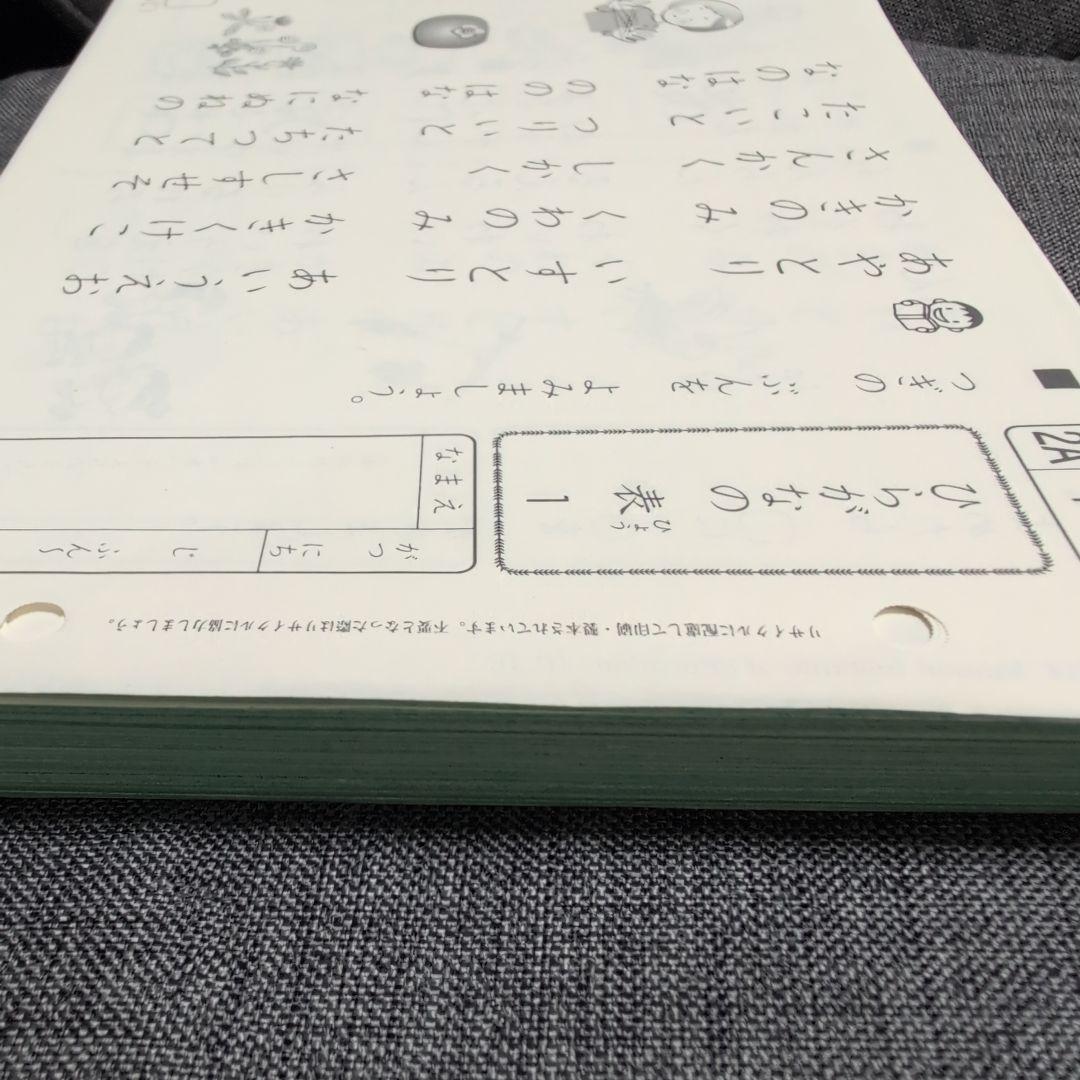 リサイクルに配慮して印刷・製本されています。不要となった際はリサイクルに協力しましょう。
2A
ひらがなの表 1
ひょう
がつ にち じ ふん〜
なまえ
つぎの ぶんを よみましょう。
あやとり いすとり あいうえお
かきのみ くわのみ かきくけこ
さんかく しかく さしすせそ
たこいと つりいと たちつてと
なのはな ののはな なにぬねの